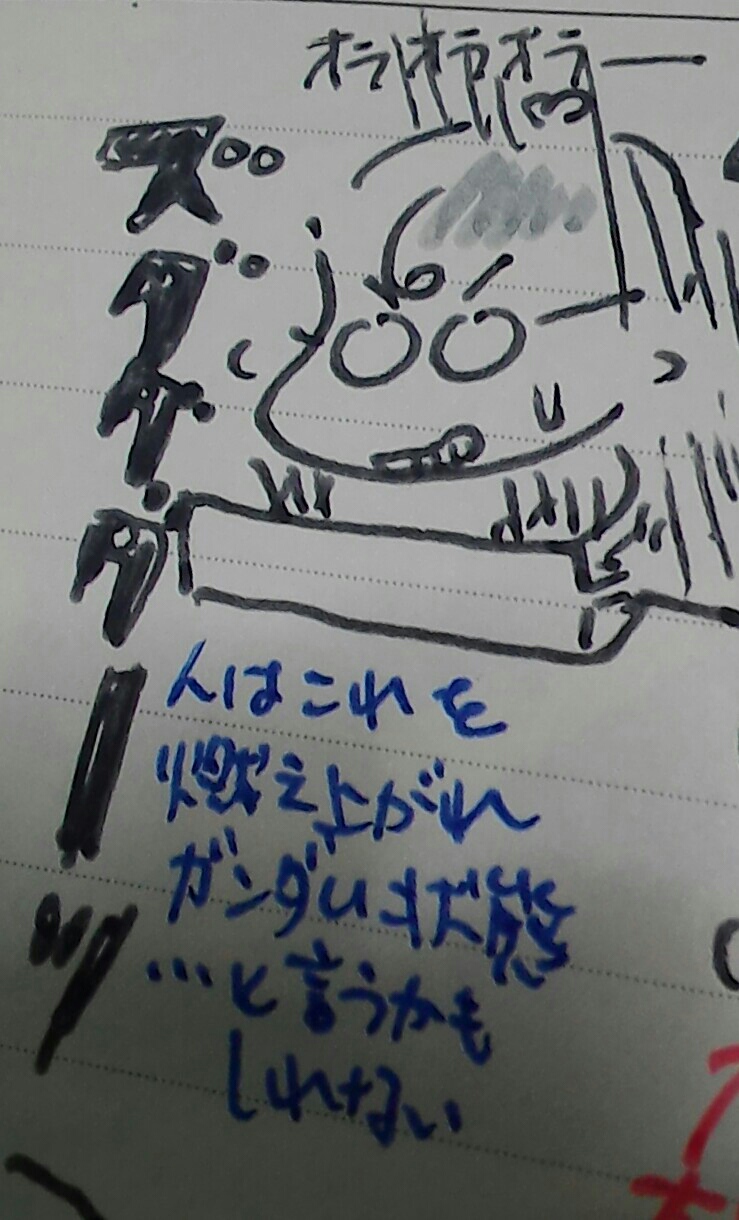 オラオラオラー
ズダダダーッ
人はこれを
燃え上がれ
ガンダム状態
…と言うかも
しれない